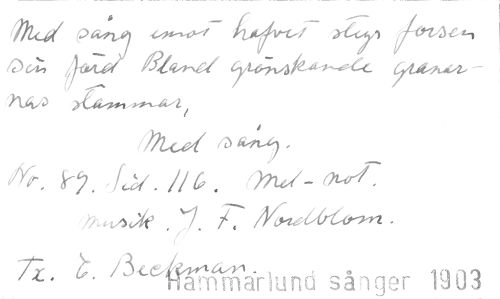 Med sång emot hafvet styr forsen
sin färd Bland grönskande granar-
nas stammar,
Med sång.
No. 89. Sid. 116. Mel-not.
musik. J. F. Nordblom.
Tx. E. Beckman.
Hammarlund sånger 1903